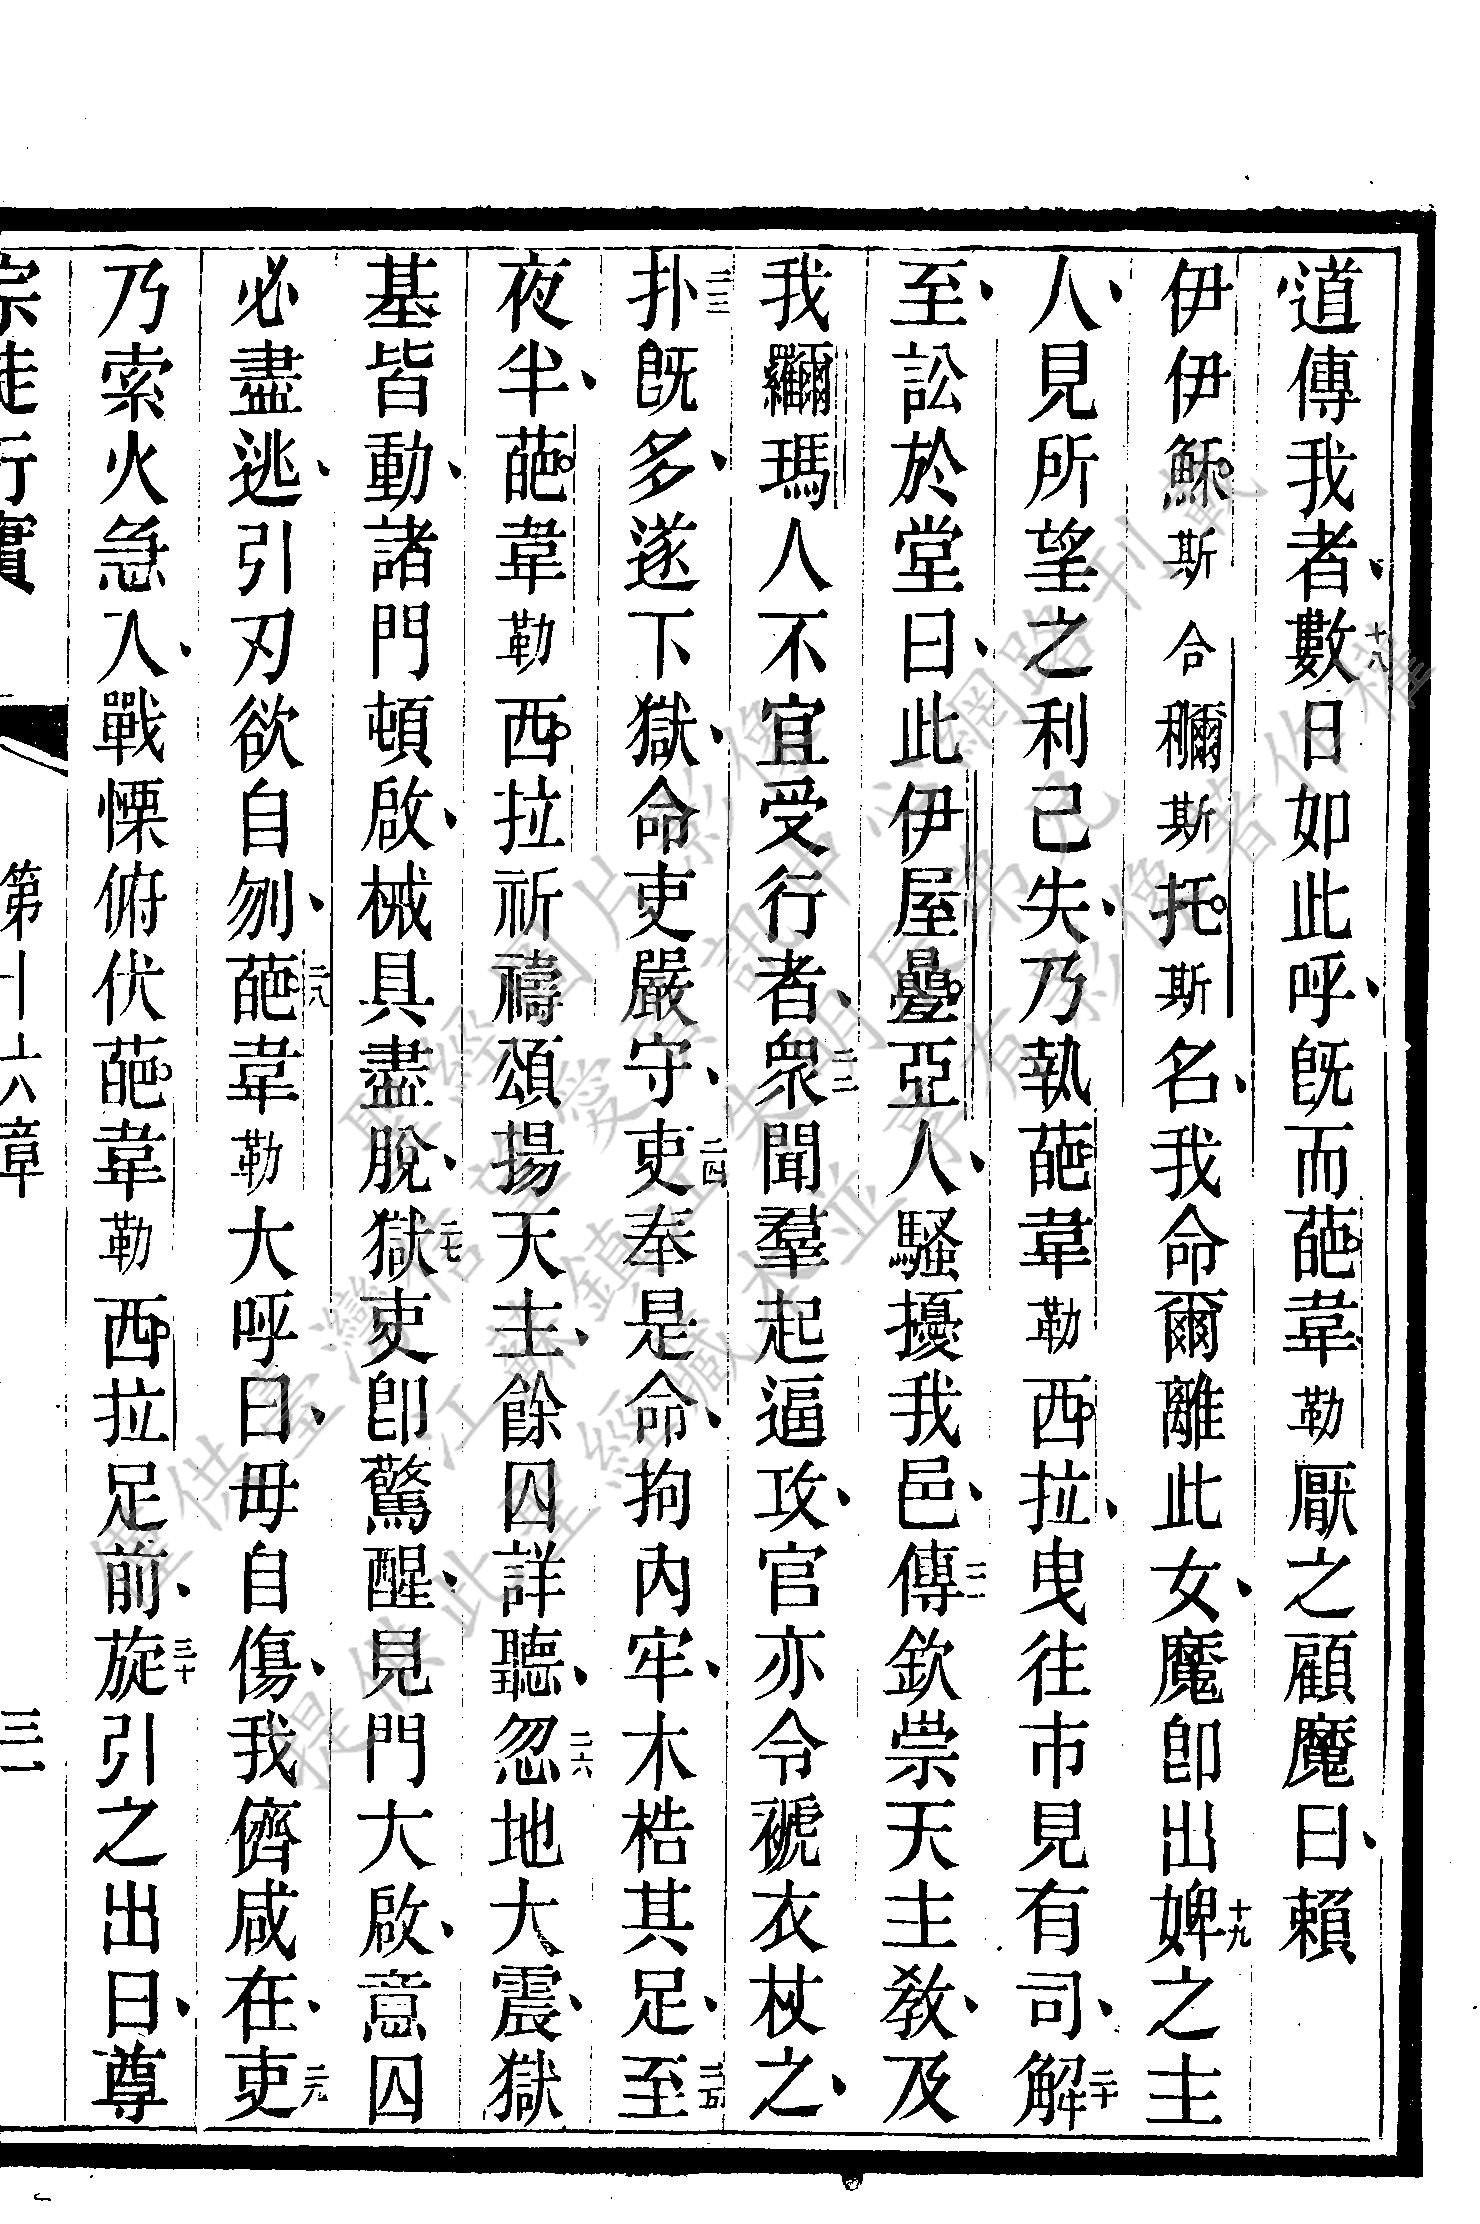 道傳我者、十八數日如此呼、旣而葩韋勒厭之顧魔曰、賴
伊伊穌斯合穪斯托斯名、我命爾離此女、魔卽出十九婢之主
人、見所望之利己失、乃執葩韋勒西拉、曳往市見有司、二十解
至、訟於堂曰、此伊屋疊亞人、騷擾我邑、二一傳欽崇天主敎、及
我瑪人不宜受行者、二二衆聞羣起逼攻、官亦令褫衣杖之、
二三扑旣多、遂下獄、命吏嚴守、二四吏奉是命、拘內牢、木梏其足、二五至
夜半、葩韋勒西拉祈禱頌揚天主、餘囚詳聽、二六忽地大震、獄
基皆動、諸門頓啟、械具盡脫、二七獄吏卽驚醒、見門大啟、意囚
必盡逃、引刃欲自刎、二八葩韋勒大呼曰、毋自傷、我儕咸在、二九吏
乃索火急入、戰慄俯伏葩韋勒西拉足前、三十旋引之出曰、尊
宗徒行實 第十六章 三一